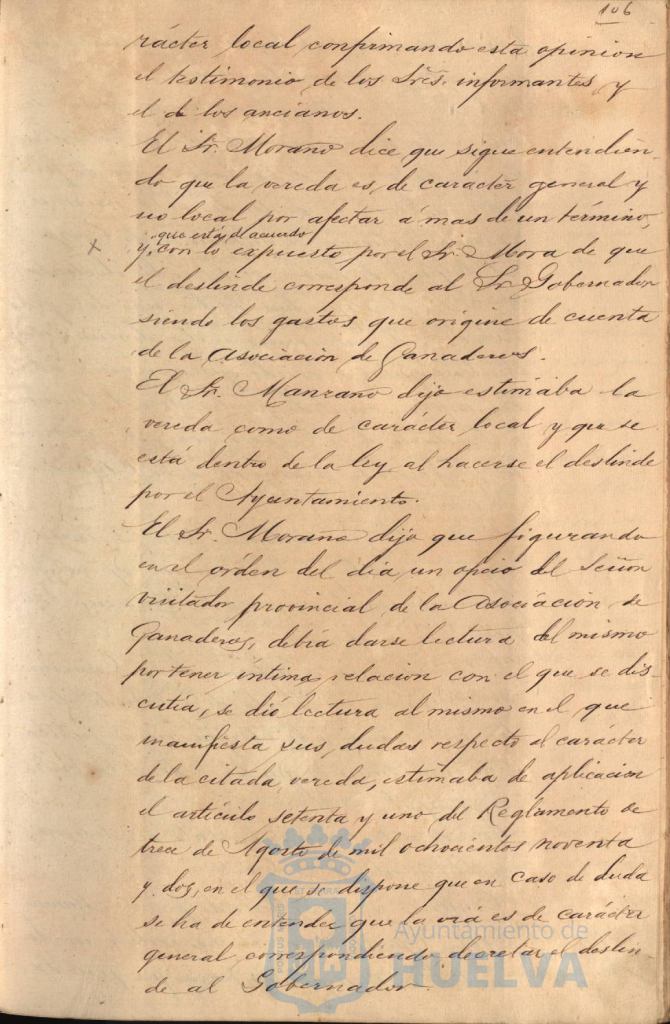 106
rácter local confirmando esta opinion
el testimonio de los Sres. informantes y
el de los ancianos.
El Sr. Moraño dice que sigue entendien-
do que la vereda es, de carácter general y
no local por afectar á mas de un término,
que está de acuerdo
x y, con lo expuesto por el Sr. Mora de que
el deslinde corresponde al Sr. Gobernador
siendo los gastos que origine de cuenta
de la Asociación de Ganaderos.
El Sr. Manzano dijo estimaba la
vereda como de carácter local y que se
está dentro de la ley al hacerse el deslinde
por el Ayuntamiento.
El Sr. Moraño dijo que figurando
en el órden del dia un oficio del Señor
visitador provincial de la Asociación de
Ganaderos, debía darse lectura del mismo
por tener íntima relacion con el que se dis-
cutía, se dió lectura al mismo en el que
manifiesta sus dudas respecto al carácter
de la citada vereda, estimaba de aplicacion
el artículo setenta y uno del Reglamento de
trece de Agosto de mil ochocientos noventa
y dos, en el que se dispone que en caso de duda
se ha de entender que la vía es de carácter
general correspondiendo decretar el deslin-
de al Gobernador.
Ayuntamiento de
HUELVA